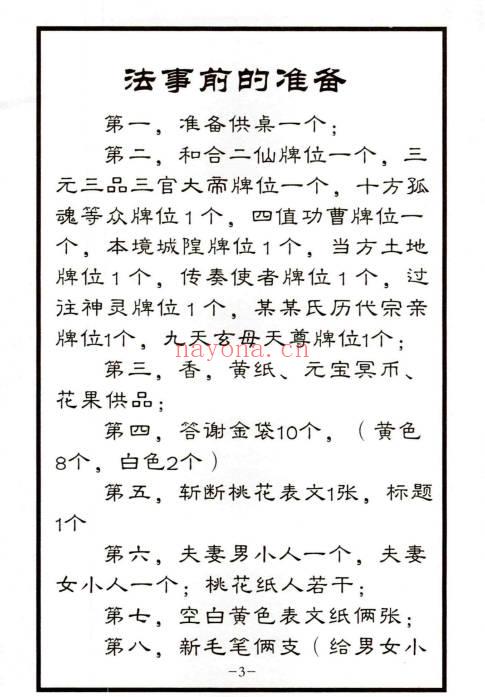 法事前的准备
第一，准备供桌一个；
第二，和合二仙牌位一个，三
元三品三官大帝牌位一个，十方孤
魂等众牌位1个，四值功曹牌位一
个，本境城隍牌位1个，当方土地
牌位1个，传奏使者牌位1个，过
往神灵牌位1个，某某氏历代宗亲
牌位1个，九天玄母天尊牌位1个；
nayona.cn
第三，香，黄纸、元宝冥币、
花果供品；
第四，答谢金袋10个，（黄色
8个，白色2个）
第五，斩断桃花表文1张，标题
1个
第六，夫妻男小人一个，夫妻
女小人一个；桃花纸人若干；
第七，空白黄色表文纸俩张；
第八，新毛笔俩支（给男女小
-3-